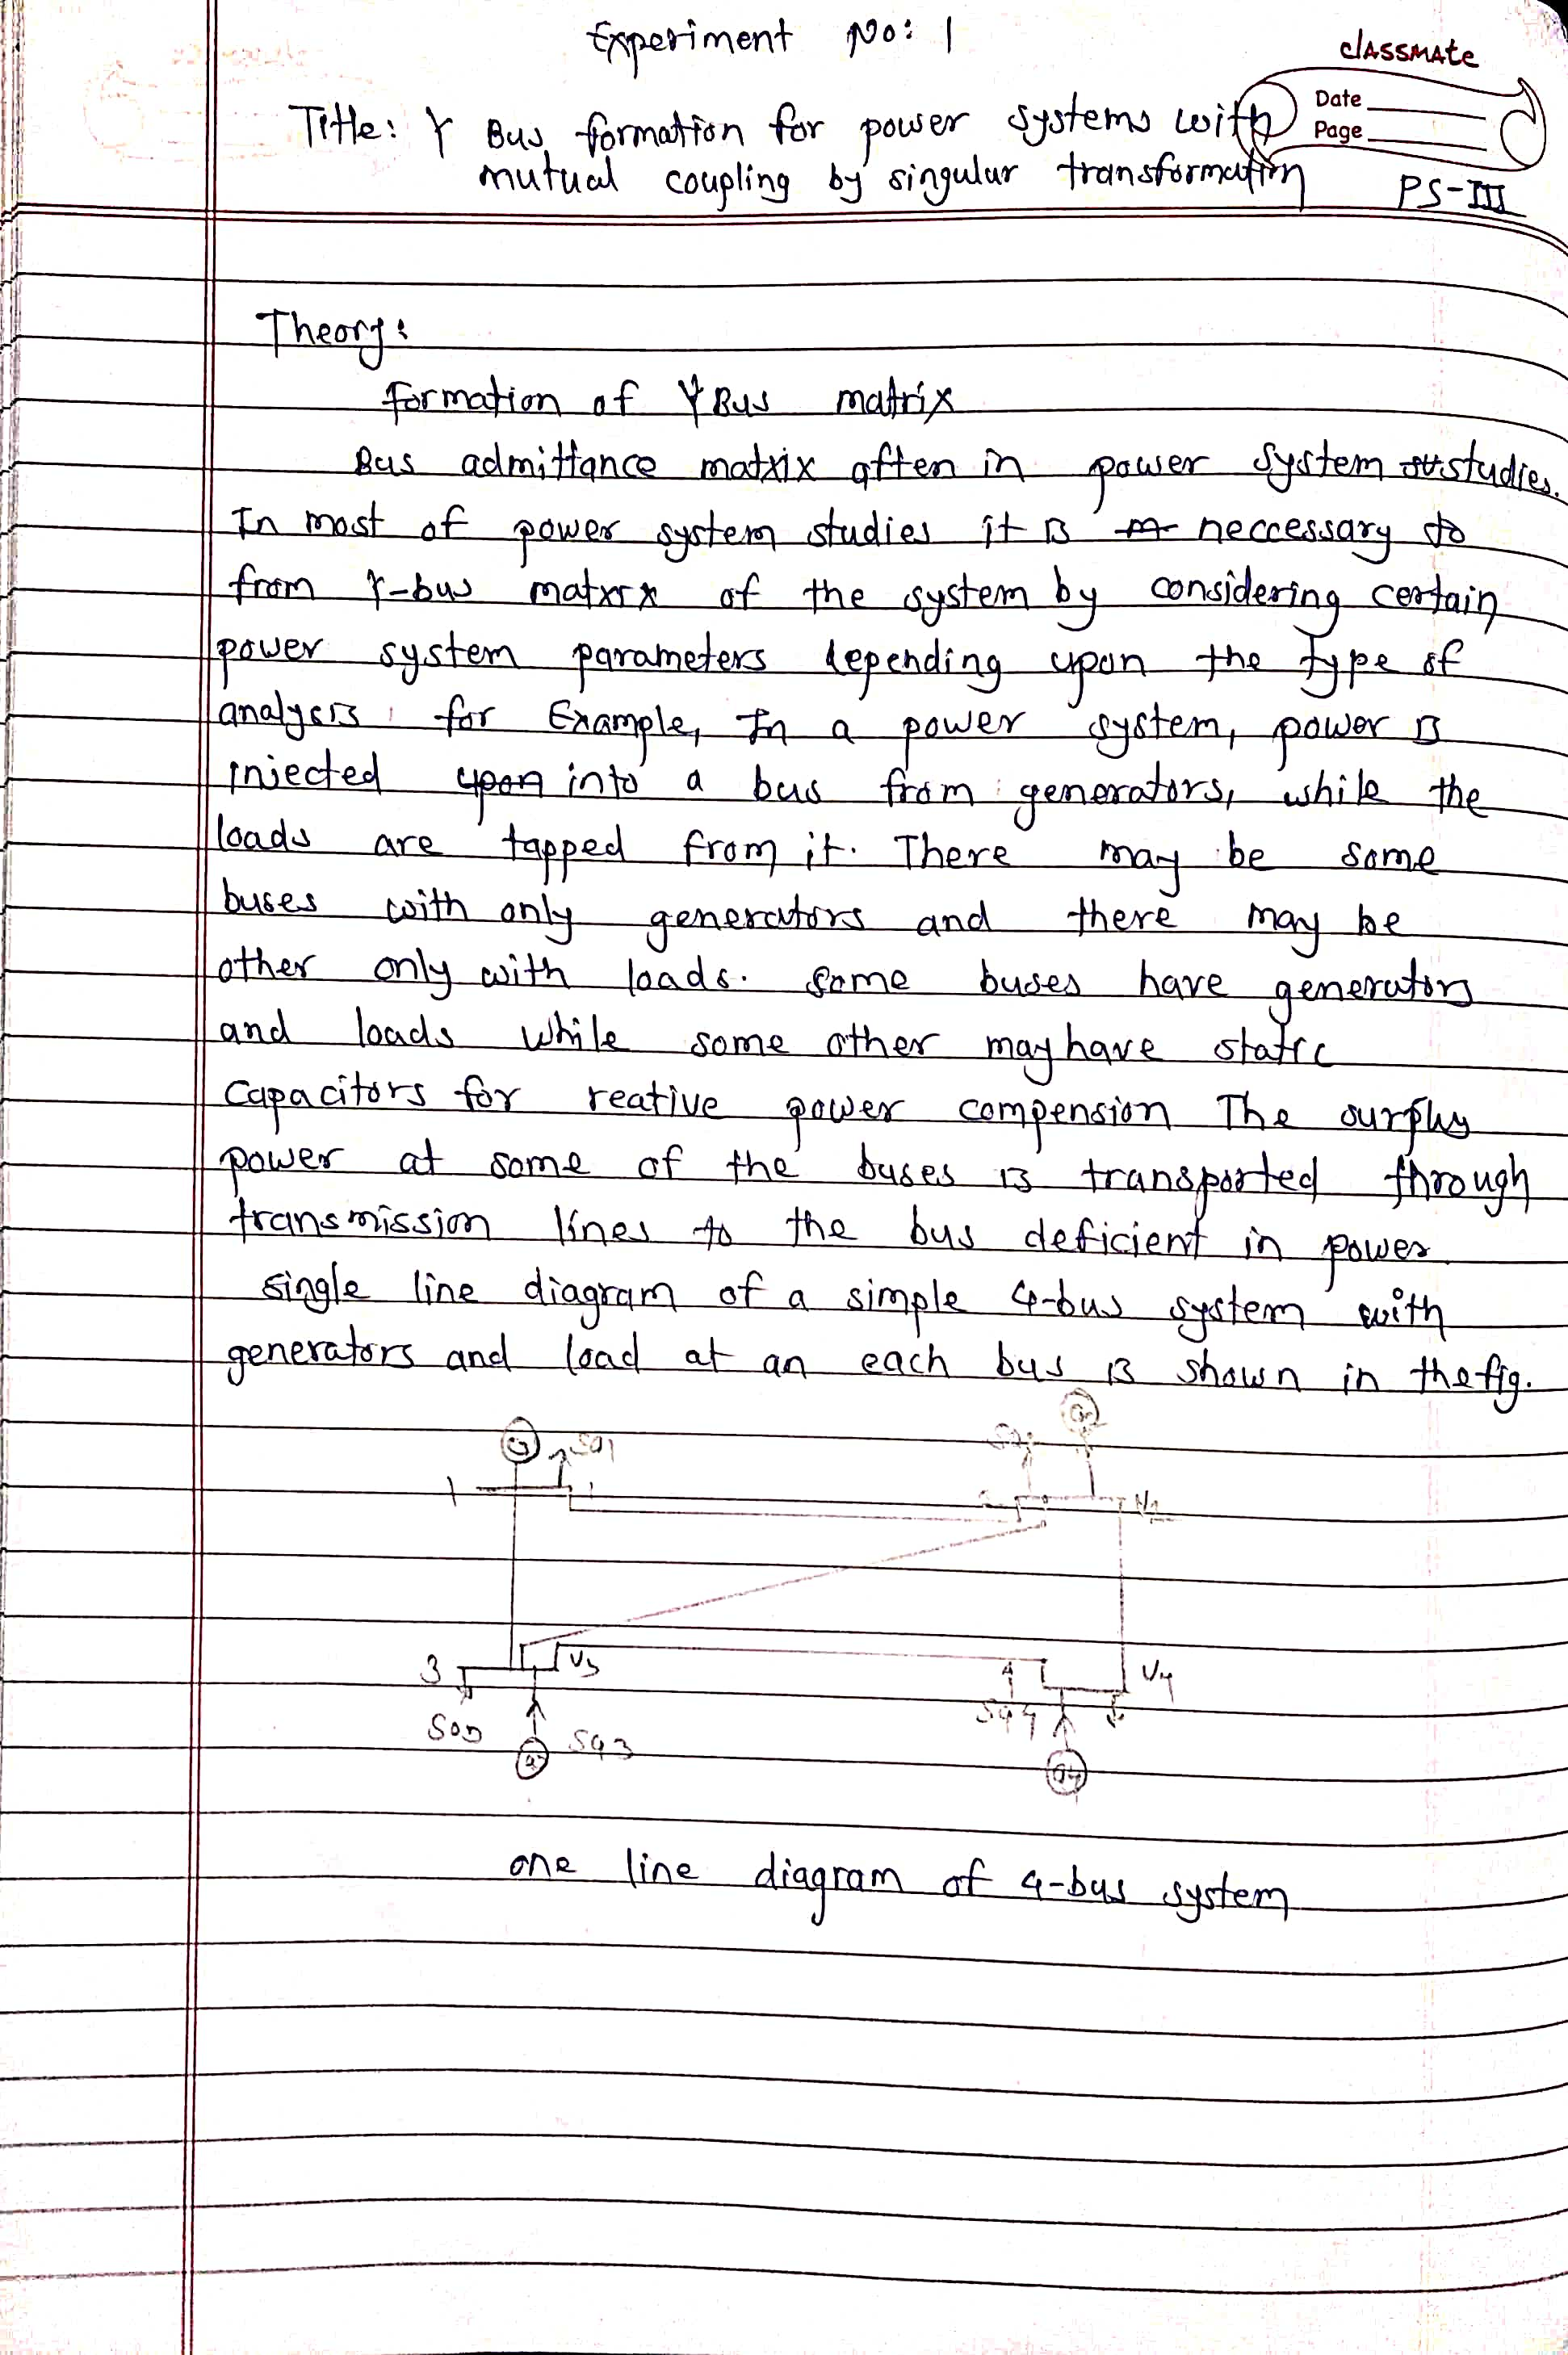 Experiment No: 1
classmate
Date
Page
Title: Y Bus formation for power systems with
mutual coupling by singular transformation
PS-III
Theory:
formation of Y Bus matrix
Bus admittance matrix often in power system studies.
In most of power system studies it is neccessary to
from Y-bus matrix of the system by considering certain
power system parameters depending upon the type of
analysis for Example, In a power system, power is
injected upon into a bus from generators, while the
loads are tapped from it. There may be some
buses with only generators and there may be
other only with loads. Some buses have generators
and loads while some other may have static
capacitors for reative power compension The surplus
power at some of the buses is transported through
transmission lines to the bus deficient in power
single line diagram of a simple 4-bus system with
generators and load at an each bus is shown in the fig.
1
3
V3
4
V4
SG3
one line diagram of 4-bus system